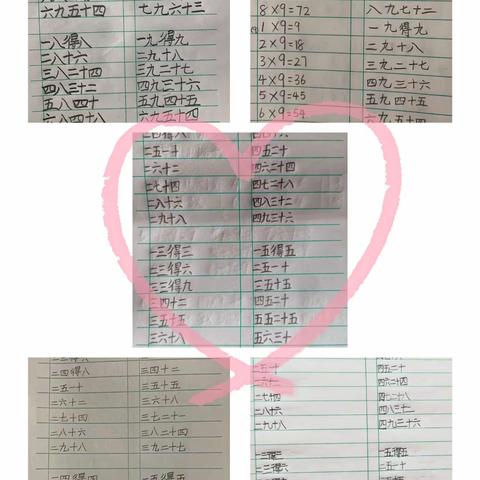 六九五十四 七九六十三
一八得八 一九得九
二八十六 二九十八
三八二十四 三九二十七
四八三十二 四九三十六
五八四十 五九四十五
六八四十八 六九五十四
8×9=72 八九七十二
1×9=9 一九得九
2×9=18 二九十八
3×9=27 三九二十七
4×9=36 四九三十六
5×9=45 五九四十五
6×9=54 六九五十四
二四得八 四四十六
二五一十 四五二十
二六十二 四六二十四
二七十四 四七二十八
二八十六 四八三十二
二九十八 四九三十六
一三得三 一五得五
二三得六 二五一十
三三得九 三五十五
三四十二 四五二十
三五十五 五五二十五
三六十八 五六三十
二三得六
二四得八 三四十二
二五一十 三五十五
二六十二 三六十八
二七十四 三七二十一
二八十六 三八二十四
二九十八 三九二十七
一四得四 一五得五
二五一十 四五二十
二六十二 四六二十四
二七十四 四七二十八
二八十六 四八三十二
二九十八 四九三十六
一三得三 一五得五
二三得六 二五一十